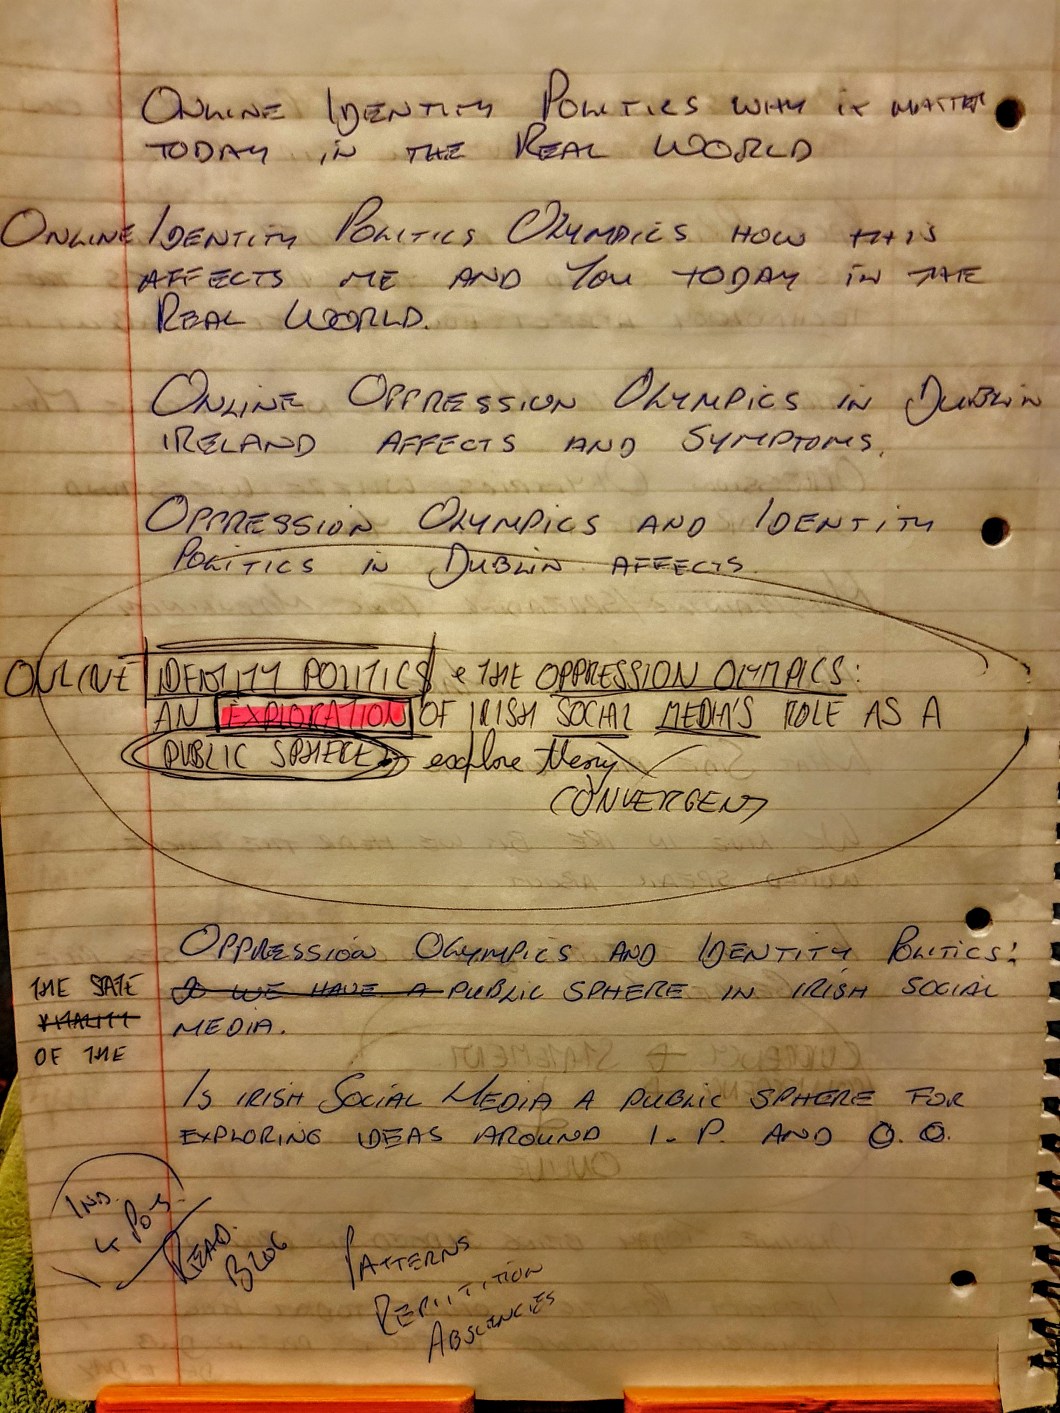 ONLINE IDENTITY POLITICS WHY IT MATTER
TODAY IN THE REAL WORLD
ONLINE IDENTITY POLITICS OLYMPICS HOW THIS
AFFECTS ME AND YOU TODAY IN THE
REAL WORLD.
ONLINE OPPRESSION OLYMPICS IN DUBLIN
IRELAND AFFECTS AND SYMPTOMS.
OPPRESSION OLYMPICS AND IDENTITY
POLITICS IN DUBLIN AFFECTS.
ONLINE IDENTITY POLITICS & THE OPPRESSION OLYMPICS:
AN EXPLORATION OF IRISH SOCIAL MEDIA'S ROLE AS A
PUBLIC SPHERE explore theory
CONVERGENT
OPPRESSION OLYMPICS AND IDENTITY POLITICS:
THE STATE WE HAVE A PUBLIC SPHERE IN IRISH SOCIAL
VITALITY MEDIA.
OF THE
IS IRISH SOCIAL MEDIA A PUBLIC SPHERE FOR
EXPLORING IDEAS AROUND I. P. AND O. O.
IND.
READ
BLOG
PATTERNS
REPITITION
ABSCENCIES